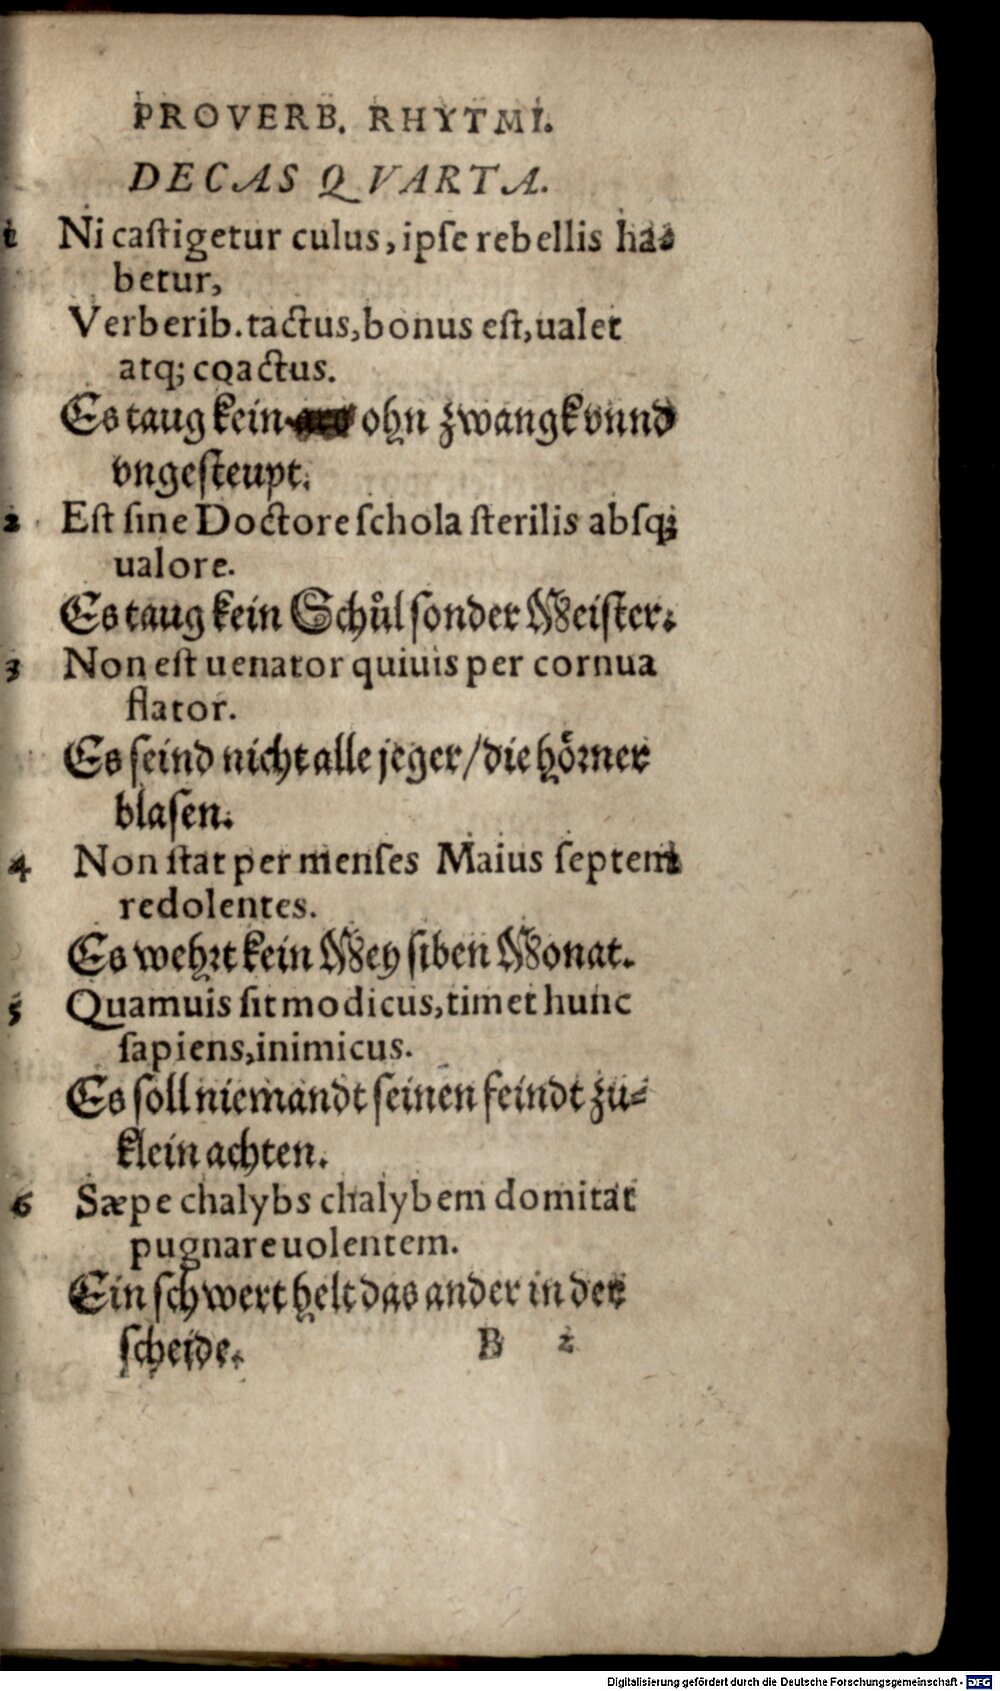 PROVERB. RHYTMI.
DECAS QVARTA.
1 Ni castigetur culus, ipse rebellis ha-
betur,
Verberib. tactus, bonus est, ualet
atq; coactus.
Es taug kein ohn zwangk vnnd
vngesteupt.
2 Est sine Doctore schola sterilis absq;
ualore.
Es taug kein Schůl sonder Meister.
3 Non est uenator quiuis per cornua
flator.
Es seind nicht alle jeger / die hoͤrner
blasen.
4 Non stat per menses Maius septem
redolentes.
Es wehrt kein Mey siben Monat.
5 Quamuis sit modicus, timet hunc
sapiens, inimicus.
Es soll niemandt seinen feindt zu-
klein achten.
6 Sæpe chalybs chalybem domitat
pugnare uolentem.
Ein schwert helt das ander in der
scheide.
B 2
Digitalisierung gefördert durch die Deutsche Forschungsgemeinschaft - DFG